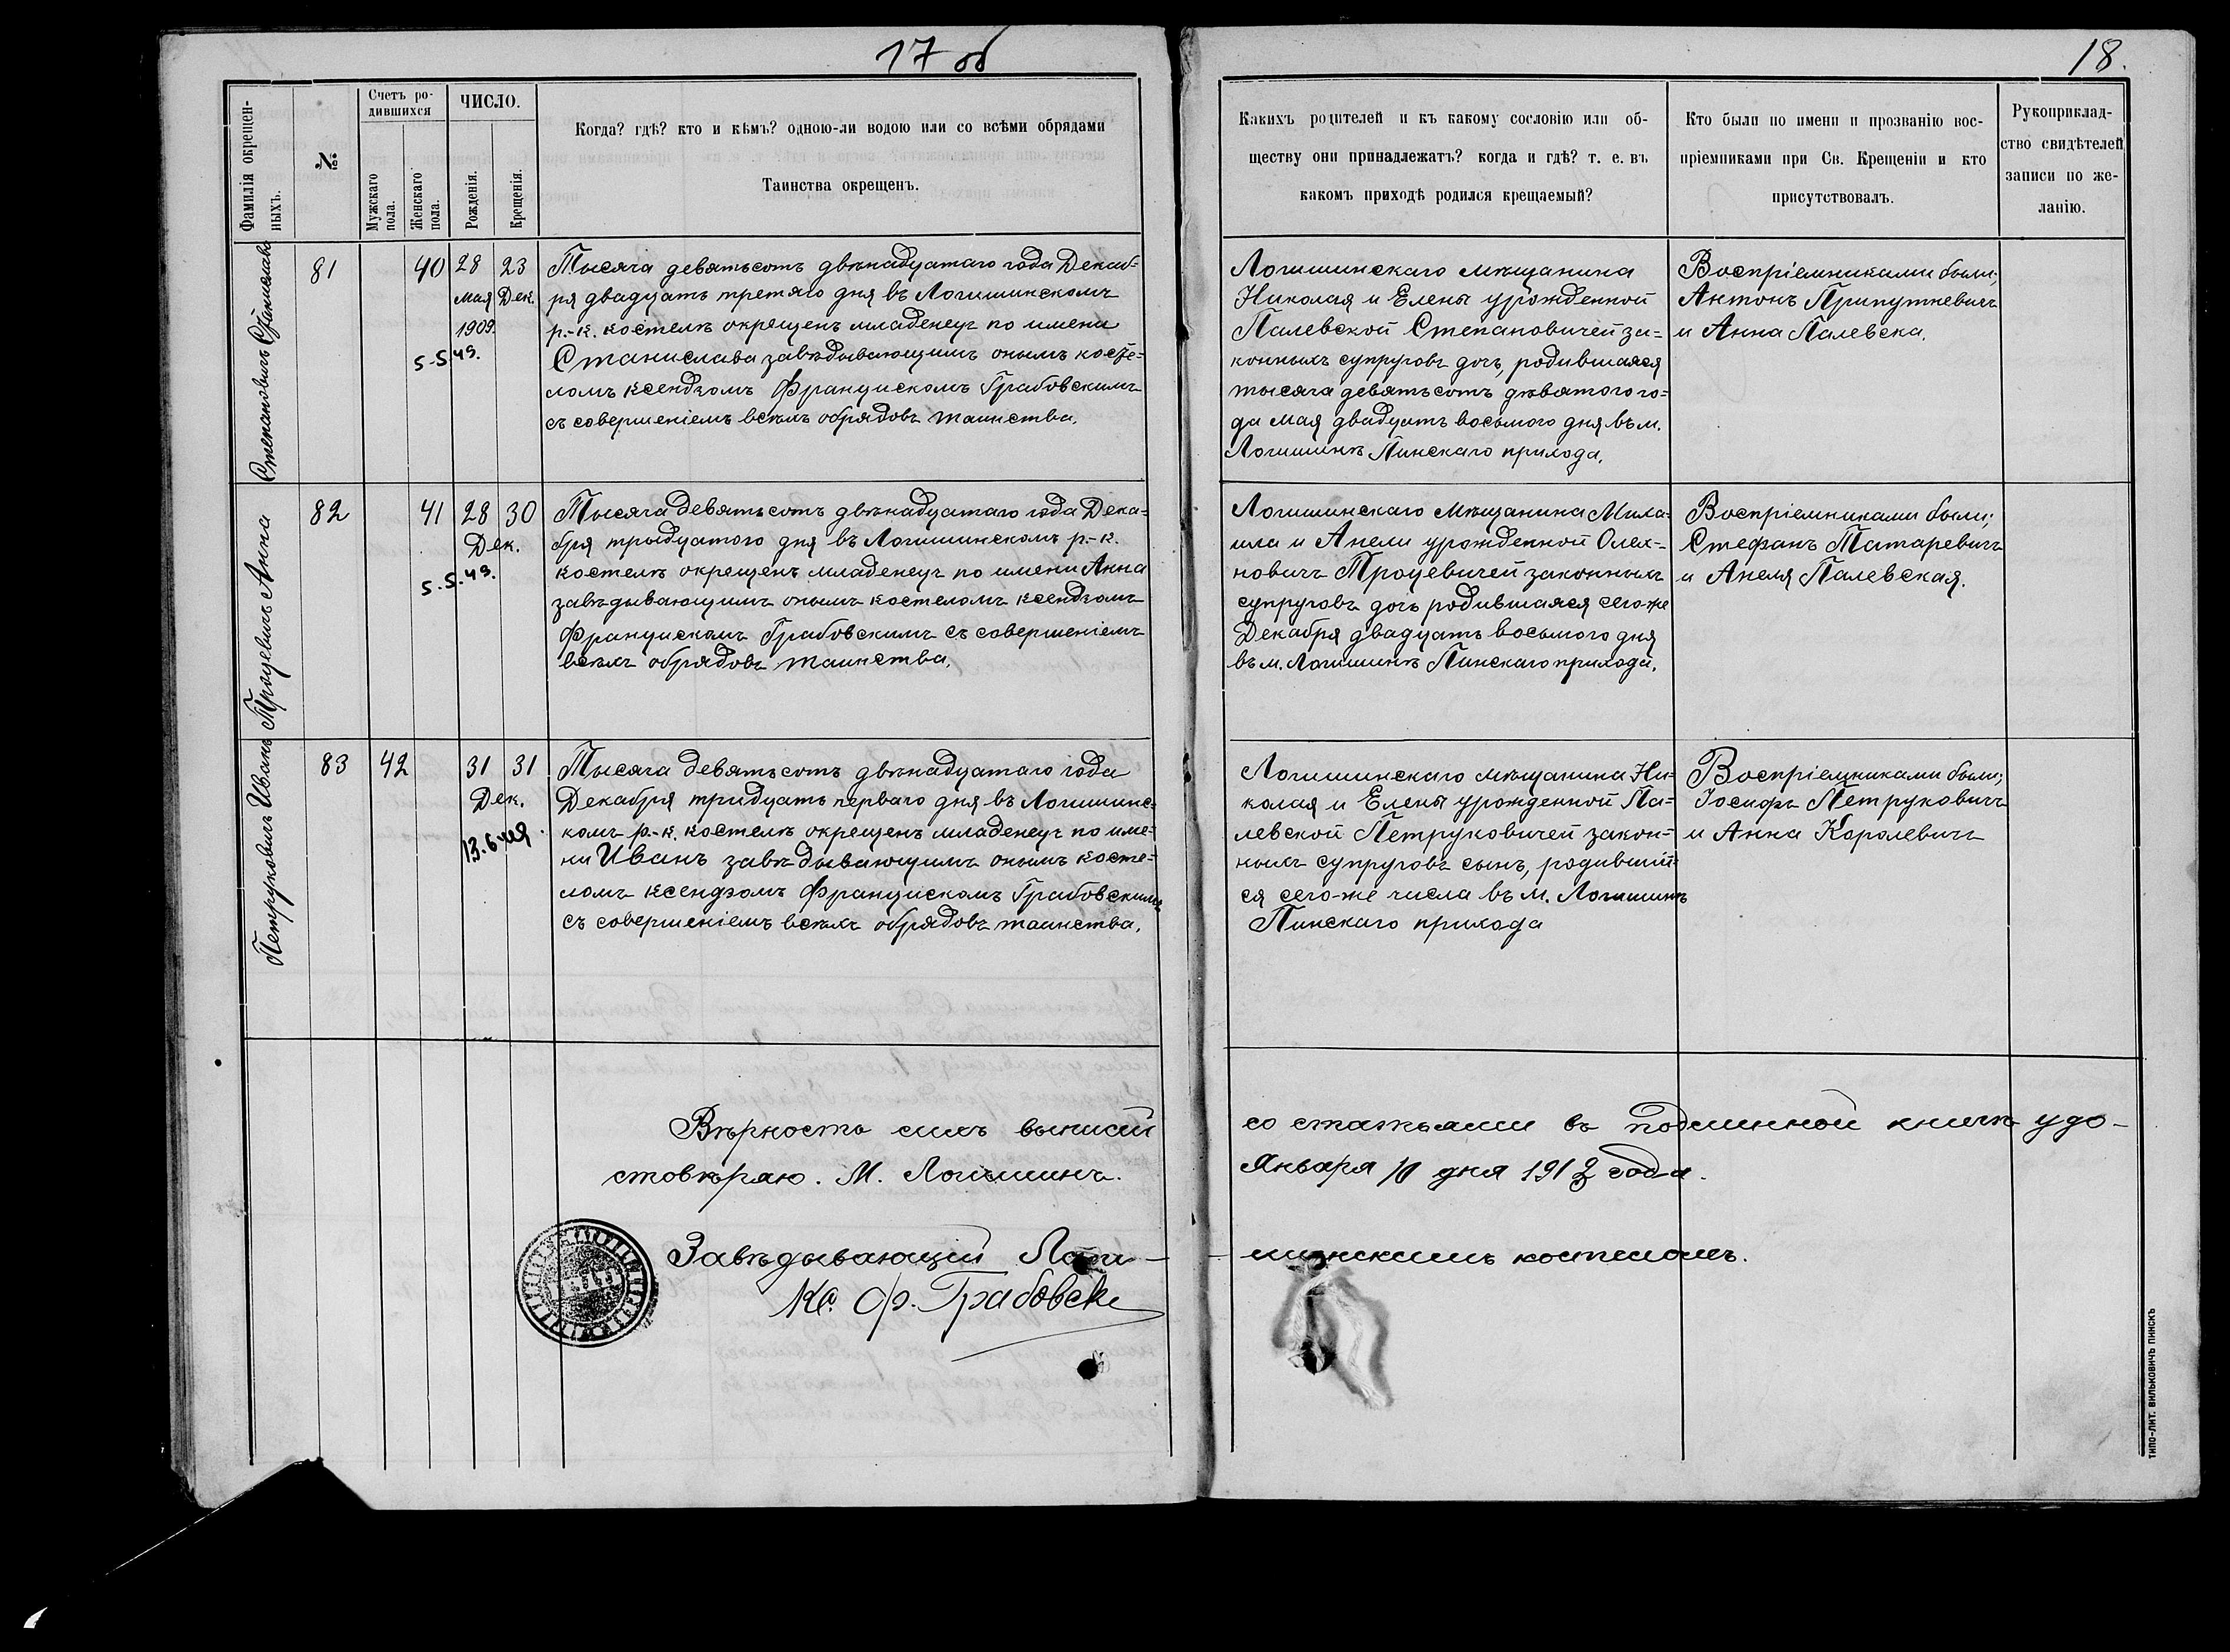 17 об
18.
Фамилія окрещен-
ныхъ.
№
Счетъ ро-
дившихся
Мужскаго
пола.
Женскаго
пола.
ЧИСЛО.
Рожденія.
Крещенія.
Когда? гдѣ? кто и кѣмъ? одною-ли водою или со всѣми обрядами
Таинства окрещенъ.
Какихъ родителей и къ какому сословію или об-
ществу они принадлежатъ? когда и гдѣ? т. е. въ
какомъ приходѣ родился крещаемый?
Кто были по имени и прозванію вос-
пріемниками при Св. Крещеніи и кто
присутствовалъ.
Рукоприклад-
ство свидѣтелей
записи по же-
ланію.
Степановичъ Станислава
81
40
28
мая
1909.
23
Дек.
5-5.49.
Тысяча девятьсотъ двѣнадцатаго года Декаб-
ря двадцать третяго дня въ Логишинскомъ
р.-к. костелѣ окрещенъ младенецъ по имени
Станислава завѣдывающимъ онымъ косте-
ломъ ксендзомъ Францискомъ Грабовскимъ
съ совершеніемъ всѣхъ обрядовъ таинства.
Логишинскаго мѣщанина
Николая и Елены урожденной
Палевской Степановичей за-
конныхъ супруговъ дочь, родившаяся
тысяча девятьсотъ девятого го-
да мая двадцать восьмого дня въ м.
Логишинѣ Пинскаго прихода.
Воспріемниками были;
Антонъ Припутневичъ
и Анна Палевска.
Процевичъ Анна
82
41
28
30
Дек.
5.5.49.
Тысяча девятьсотъ двѣнадцатаго года Дека-
бря тридцатого дня въ Логишинскомъ р.-к.
костелѣ окрещенъ младенецъ по имени Анна
завѣдывающимъ онымъ костеломъ ксендзомъ
Францискомъ Грабовскимъ съ совершеніемъ
всѣхъ обрядовъ таинства.
Логишинскаго мѣщанина Миха-
ила и Анели урожденной Олех-
новичъ Процевичей законныхъ
супруговъ дочь родившаяся сего-же
Декабря двадцать восьмого дня
въ м. Логишинѣ Пинскаго прихода.
Воспріемниками были;
Стефанъ Татаревичъ
и Анеля Палевская.
Петруковичъ Иванъ
83
42
31
31
Дек.
Тысяча девятьсотъ двѣнадцатаго года
Декабря тридцать перваго дня въ Логишинс-
комъ р.-к. костелѣ окрещенъ младенецъ по име-
ни Иванъ завѣдывающимъ онымъ косте-
ломъ ксендзомъ Францискомъ Грабовскимъ
съ совершеніемъ всѣхъ обрядовъ таинства.
Логишинскаго мѣщанина Ни-
колая и Елены урожденной Па-
левской Петруковичей закон-
ныхъ супруговъ сынъ, родивший-
ся сего-же числа въ м. Логишинѣ
Пинскаго прихода
Воспріемниками были;
Іосифъ Петруковичъ
и Анна Королевичъ
Вѣрность сихъ выписей
со статьями въ подлинной книгѣ удо-
стовѣряю. М. Логишинъ.
Января 10 дня 1913 года.
Завѣдывающій Логи-
шинскимъ костеломъ.
Кс. Ф. Грабовски
ТИПО-ЛИТ. ВИЛЬКОВИЧЪ ПИНСКЪ